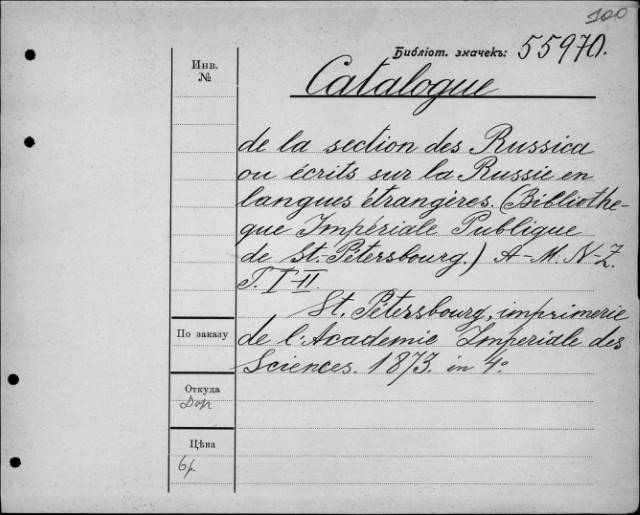 100
Библіот. значекъ: 55970.
Инв.
№
Catalogue
de la section des Russica
ou écrits sur la Russie en
langues étrangères. (Bibliothe-
que Impériale Publique
de St.-Pétersbourg.) A-M. N-Z.
T. I-II.
St. Pétersbourg, imprimerie
По заказу
de l'Academie Imperiale des
Sciences. 1873. in 4°
Откуда
Цѣна
6р.